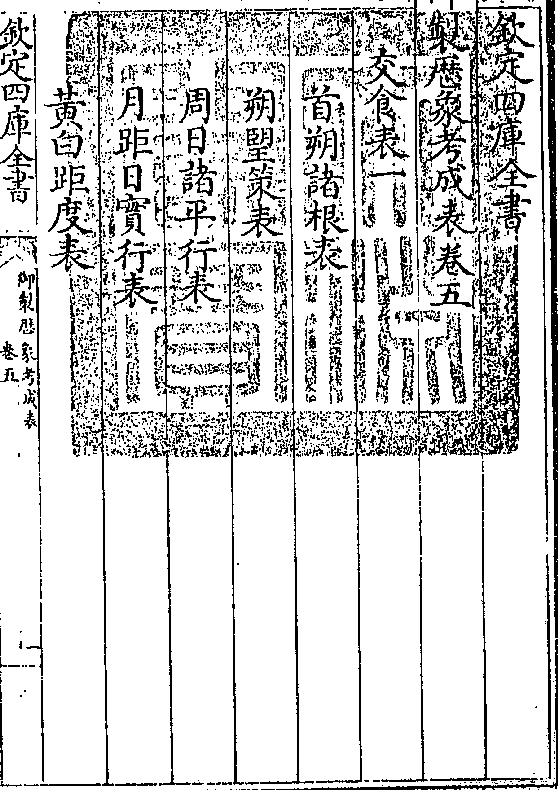 欽定四庫全書
製歷象考成表卷五
交食表一
首朔諸根表
朔望策表
周日諸平行表
月距日實行表
黃白距度表
欽定四庫全書
御製歷象考成表
卷五
一